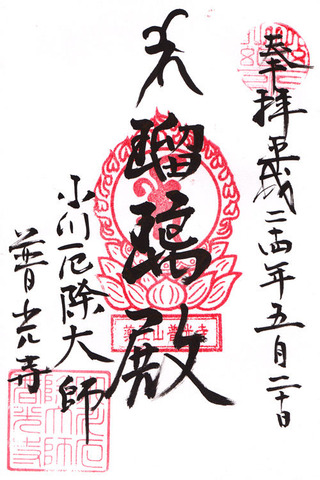 奉拝 平成二十四年五月二十日
瑠璃殿
小川厄除大師
普光寺
薬王山普光寺